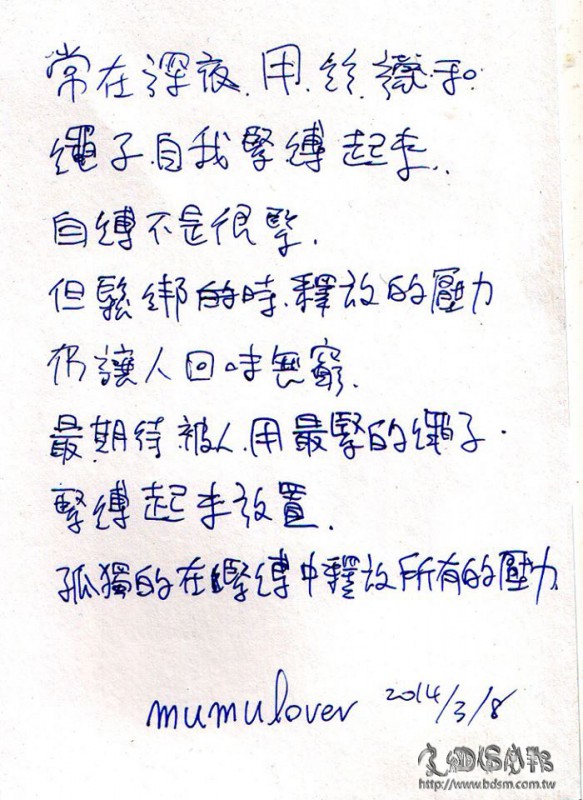 常在深夜.用.絲襪.和
繩子.自我緊縛起來.
自縛不是很緊.
但鬆綁的時.釋放的壓力
仍讓人回味無窮.
最期待.被人.用最緊的繩子.
緊縛起來放置.
孤獨的在緊縛中釋放所有的壓力.
mumulover 2014/3/8
http://www.bdsm.com.tw